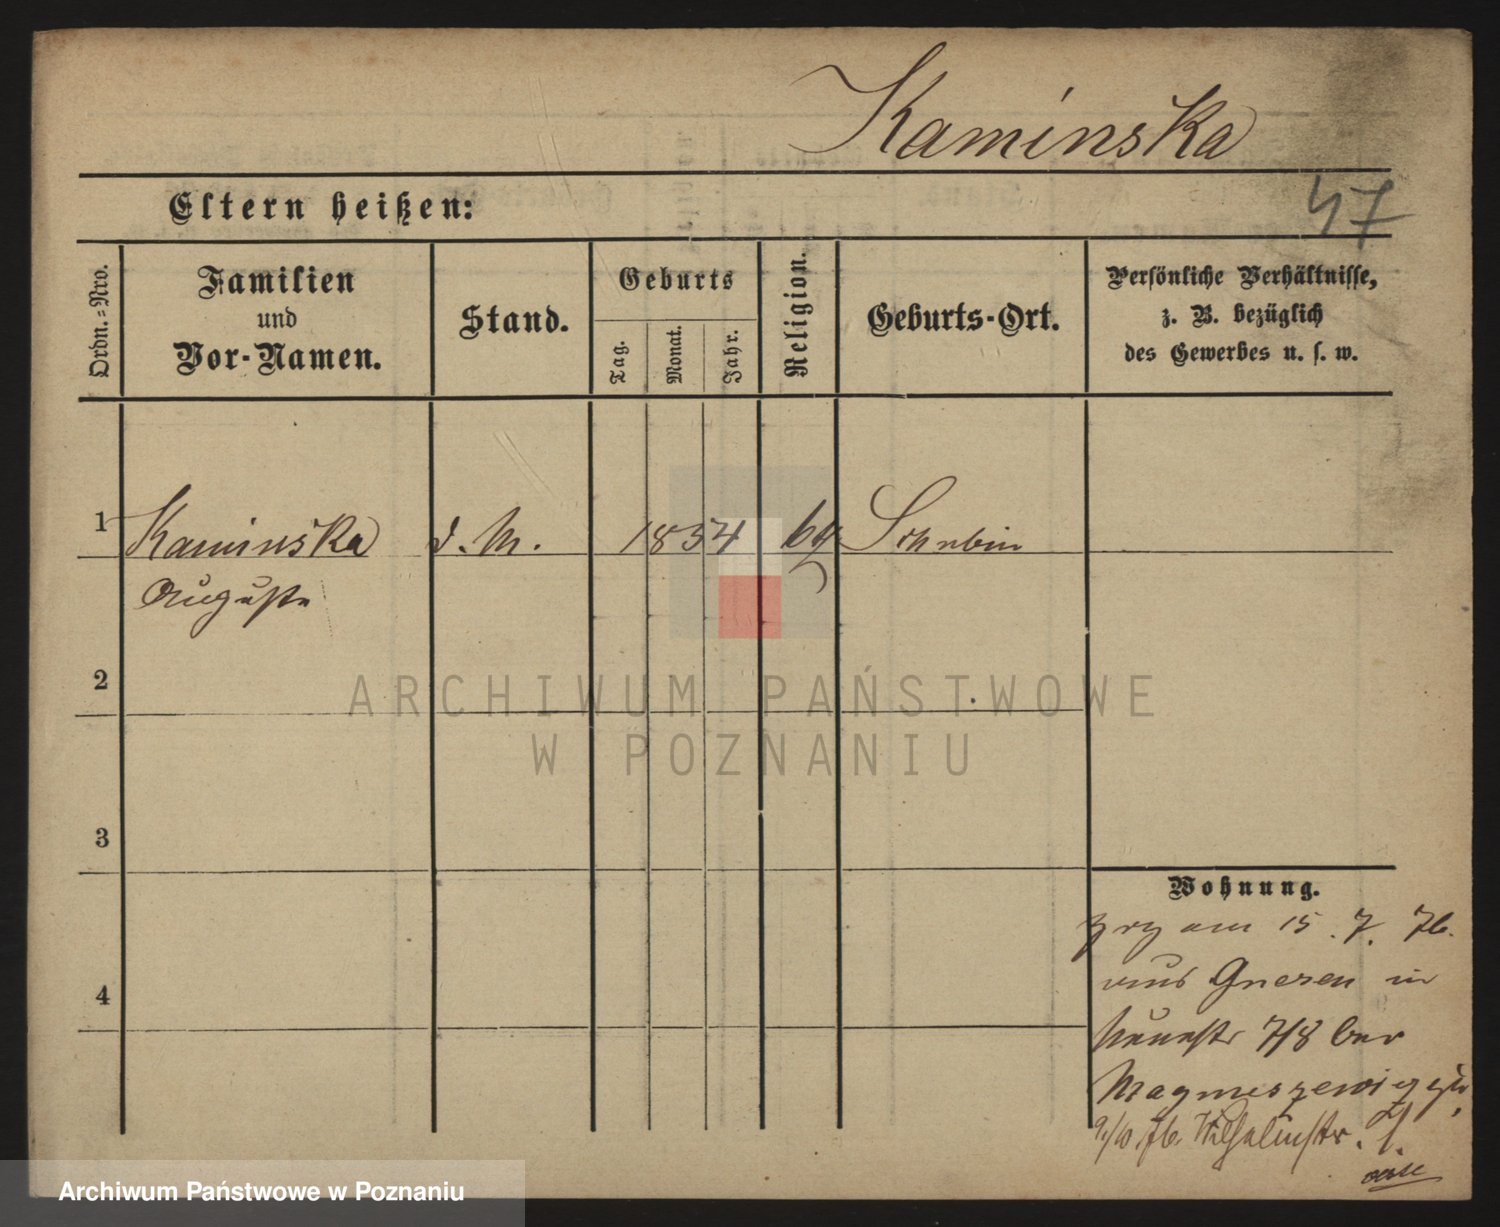 Kaminska
47
Eltern heißen:
Ordn.-Nro.
Familien
und
Vor-Namen.
Stand.
Geburts
Tag.
Monat.
Jahr.
Religion.
Geburts-Ort.
Persönliche Verhältnisse,
z. B. bezüglich
des Gewerbes u. s. w.
1 Kaminska d. M. 1854 Schubin
Auguste
2
3
4
Wohnung.
am 15. 7. 76.
aus Gnesen in
7/8 bei
9/10. 76. Wilhelmstr. 1.
ARCHIWUM PAŃSTWOWE
W POZNANIU
Archiwum Państwowe w Poznaniu